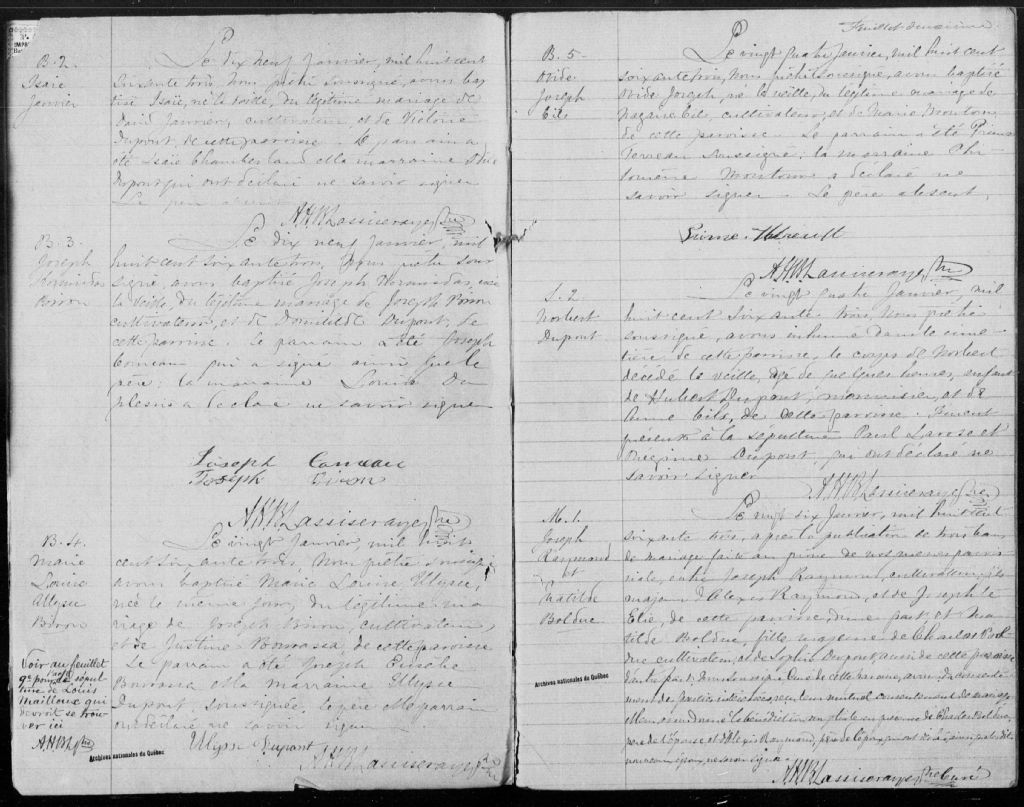 B. 2
Isaïe
Janvier
Le dix neuf Janvier, mil huit cent
soixante trois, Nous prêtre soussigné, avons bap
tisé Isaïe, né la veille, du légitime mariage de
David Janvier, cultivateur et de Victoire
Dupont, de cette paroisse. Le parrain a
été Isaïe Chamberland et la marraine
Dupont qui ont déclaré ne savoir signer
Le père absent
A.H.B. Lassiseraye Ptre
B. 3.
Joseph
Hormisdas
Biron
Le dix neuf Janvier, mil
huit cent soixante trois, Nous prêtre sous
signé, avons baptisé Joseph Hormisdas, né
la veille, du légitime mariage de Joseph Biron
cultivateur, et de Domitilde Dupont, de
cette paroisse. Le parrain a été Joseph
Comeau qui a signé ainsi que le
père; la marraine Louise Du
plessis a déclaré ne savoir signer
Joseph Comeau
Joseph Biron
A.H.B. Lassiseraye Ptre
B. 4.
Marie
Louise
Ulysse
Biron
Le vingt Janvier, mil huit
cent soixante trois, Nous prêtre soussigné
avons baptisé Marie Louise Ulysse,
née le même jour, du légitime ma
riage de Joseph Biron, cultivateur,
et de Justine Bourassa, de cette paroisse
Le parrain a été Joseph Eusèbe
Bourassa et la marraine Ulysse
Dupont, soussignée, le père et le parrain
ont déclaré ne savoir signer
Ulysse Dupont
A.H.B. Lassiseraye Ptre
Voir au feuillet
9e pour la sépul
ture de Louis
Mailloux qui
devroit se trou
ver ici
A.H.B.L. Ptre
Archives nationales du Québec
Feuillet deuxième.
B. 5
Ovide
Joseph
Eils
Le vingt quatre Janvier, mil huit cent
soixante trois, Nous prêtre soussigné, avons baptisé
Ovide Joseph, né la veille, du légitime mariage de
Nazaire Eils, cultivateur, et de Marie Moutonne
de cette paroisse. Le parrain a été
soussigné; la marraine Phi
lomène Moutonne a déclaré ne
savoir signer. Le père absent.
A.H.B. Lassiseraye Ptre
S. 2
Norbert
Dupont
Le vingt quatre Janvier, mil
huit cent soixante trois, Nous prêtre
soussigné, avons inhumé dans le cime
tière de cette paroisse, le corps de Norbert
décédé la veille, âgé de quelques heures, enfant
de Hubert Dupont, menuisier, et de
Anne Eils, de cette paroisse. Furent
présents à la sépulture Paul Larose et
Onézime Dupont, qui ont déclaré ne
savoir signer
A.H.B. Lassiseraye Ptre
M. 1.
Joseph
Raymond
et
Matilde
Bolduc
Le vingt six Janvier, mil huit cent
soixante trois, après la publication de trois bans
de mariage faite au prône de nos messes parois
siales, entre Joseph Raymond, cultivateur, fils
majeur d'Alexis Raymond, et de Josephte
Elie, de cette paroisse, d'une part, et Ma
tilde Bolduc, fille majeure de Charles Bol
duc cultivateur, et de Sophie Dupont, aussi de cette paroisse
d'autre part; Nous soussigné Curé de cette paroisse, avons du consente
ment des parties intéressées, reçu leur mutuel consentement de mariage
et leur avons donné la bénédiction nuptiale en présence de Charles Bolduc,
père de l'épouse et d'Alexis Raymond, père de l'époux,
A.H.B. Lassiseraye Ptre Curé
Archives nationales du Québec